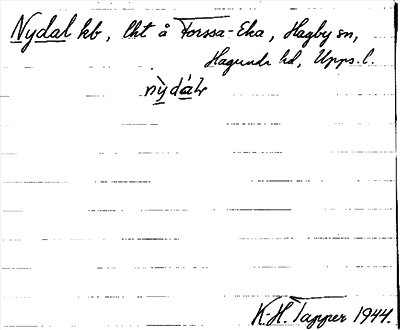 Nydal kb, lht å Forssa-Eka, Hagby sn,
Hagunda hd, Upps. l.
nỳdáɫ
K.-H. Tapper 1944.